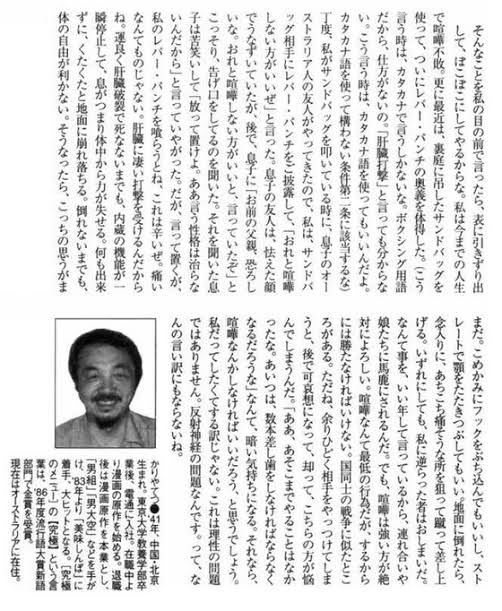 そんなことを私の目の前で言ったら、表に引きずり出
して、ぼこぼこにしてやるからな。私は今までの人生
で喧嘩不敗。更に最近は、裏庭に吊したサンドバッグを
使って、ついにレバー・パンチの奥義を体得した。(こう
言う時は、カタカナで言うしかないな。ボクシング用語
だから、仕方がないの。「肝臓打撃」と言っても分からな
い。こう言う時は、カタカナ語を使ってもいいんだよ。
カタカナ語を使って構わない条件第二条に該当するな)
丁度、私がサンドバッグを叩いている時に、息子のオー
ストラリア人の友人がやってきたので、私は、サンドバ
ッグ相手にレバー・パンチをご披露して、「おれと喧嘩
しない方がいいぜ」と言った。息子の友人は、怯えた顔
でうなずいていたが、後で、息子に「お前の父親、恐ろし
いな。おれと喧嘩しない方がいいと、言っていたぞ」と
こっそり、告げ口をしてるのを聞いた。それを聞いた息
子は苦笑いして「放って置けよ。ああ言う性格は治らな
いんだから」と言っていやがった。だが、言って置くが、
私のレバー・パンチを喰らうとね、これは辛いぜ。痛い
なんてものじゃない。肝臓に凄い打撃を受けるんだから
ね。運良く肝臓破裂で死なないまでも、内蔵の機能が一
瞬停止して、息がつまり体中から力が失せる。何も出来
ずに、くたくたと地面に崩れ落ちる。倒れないまでも、
体の自由が利かない。そうなったら、こっちの思うがま
まだ。こめかみにフックをぶち込んでもいいし、スト
レートで顎をたたきつぶしてもいい。地面に倒れたら、
念入りに、あちこち痛そうな所を狙って蹴って差し上
げる。いずれにしても、私に逆らった者はおしまいだ。
なんて事を、いい年して言っているから、連れ合いや
娘たちに馬鹿にされるんだ。でも、喧嘩は強い方が絶
対によろしい。喧嘩なんて最低の行為だがするから
には勝たなければいけない。国同士の戦争に似たとこ
ろがある。ただね、余りひどく相手をやっつけてしま
うと、後で可哀想になって、却ってこちらの方が悩
んでしまうんだ。「ああ、あそこまでやることはなか
ったな。あいつは、数本差し歯をしなければならなく
なるだろうな」なんて、暗い気持ちになる。それなら、
喧嘩なんかしなければいいだろう、と思うでしょう。
私だってしたくてする訳じゃない。これは理性の問題
ではありません。反射神経の問題なんです。って、な
んの言い訳にもならないね。
かりやてつ●'41年、中国・北京
生まれ。東京大学教養学部卒
業後、電通に入社。在職中よ
り漫画の原作を始める。退職
後は漫画原作を本業とし、
「男組」「男大空」などを手が
け、'83年より「美味しんぼ」に
着手、大ヒットとなる。「究極
のメニュー」の【究極】という言
葉は、'86年度流行語大賞新語
部門で金賞を受賞。
現在はオーストラリアに在住。